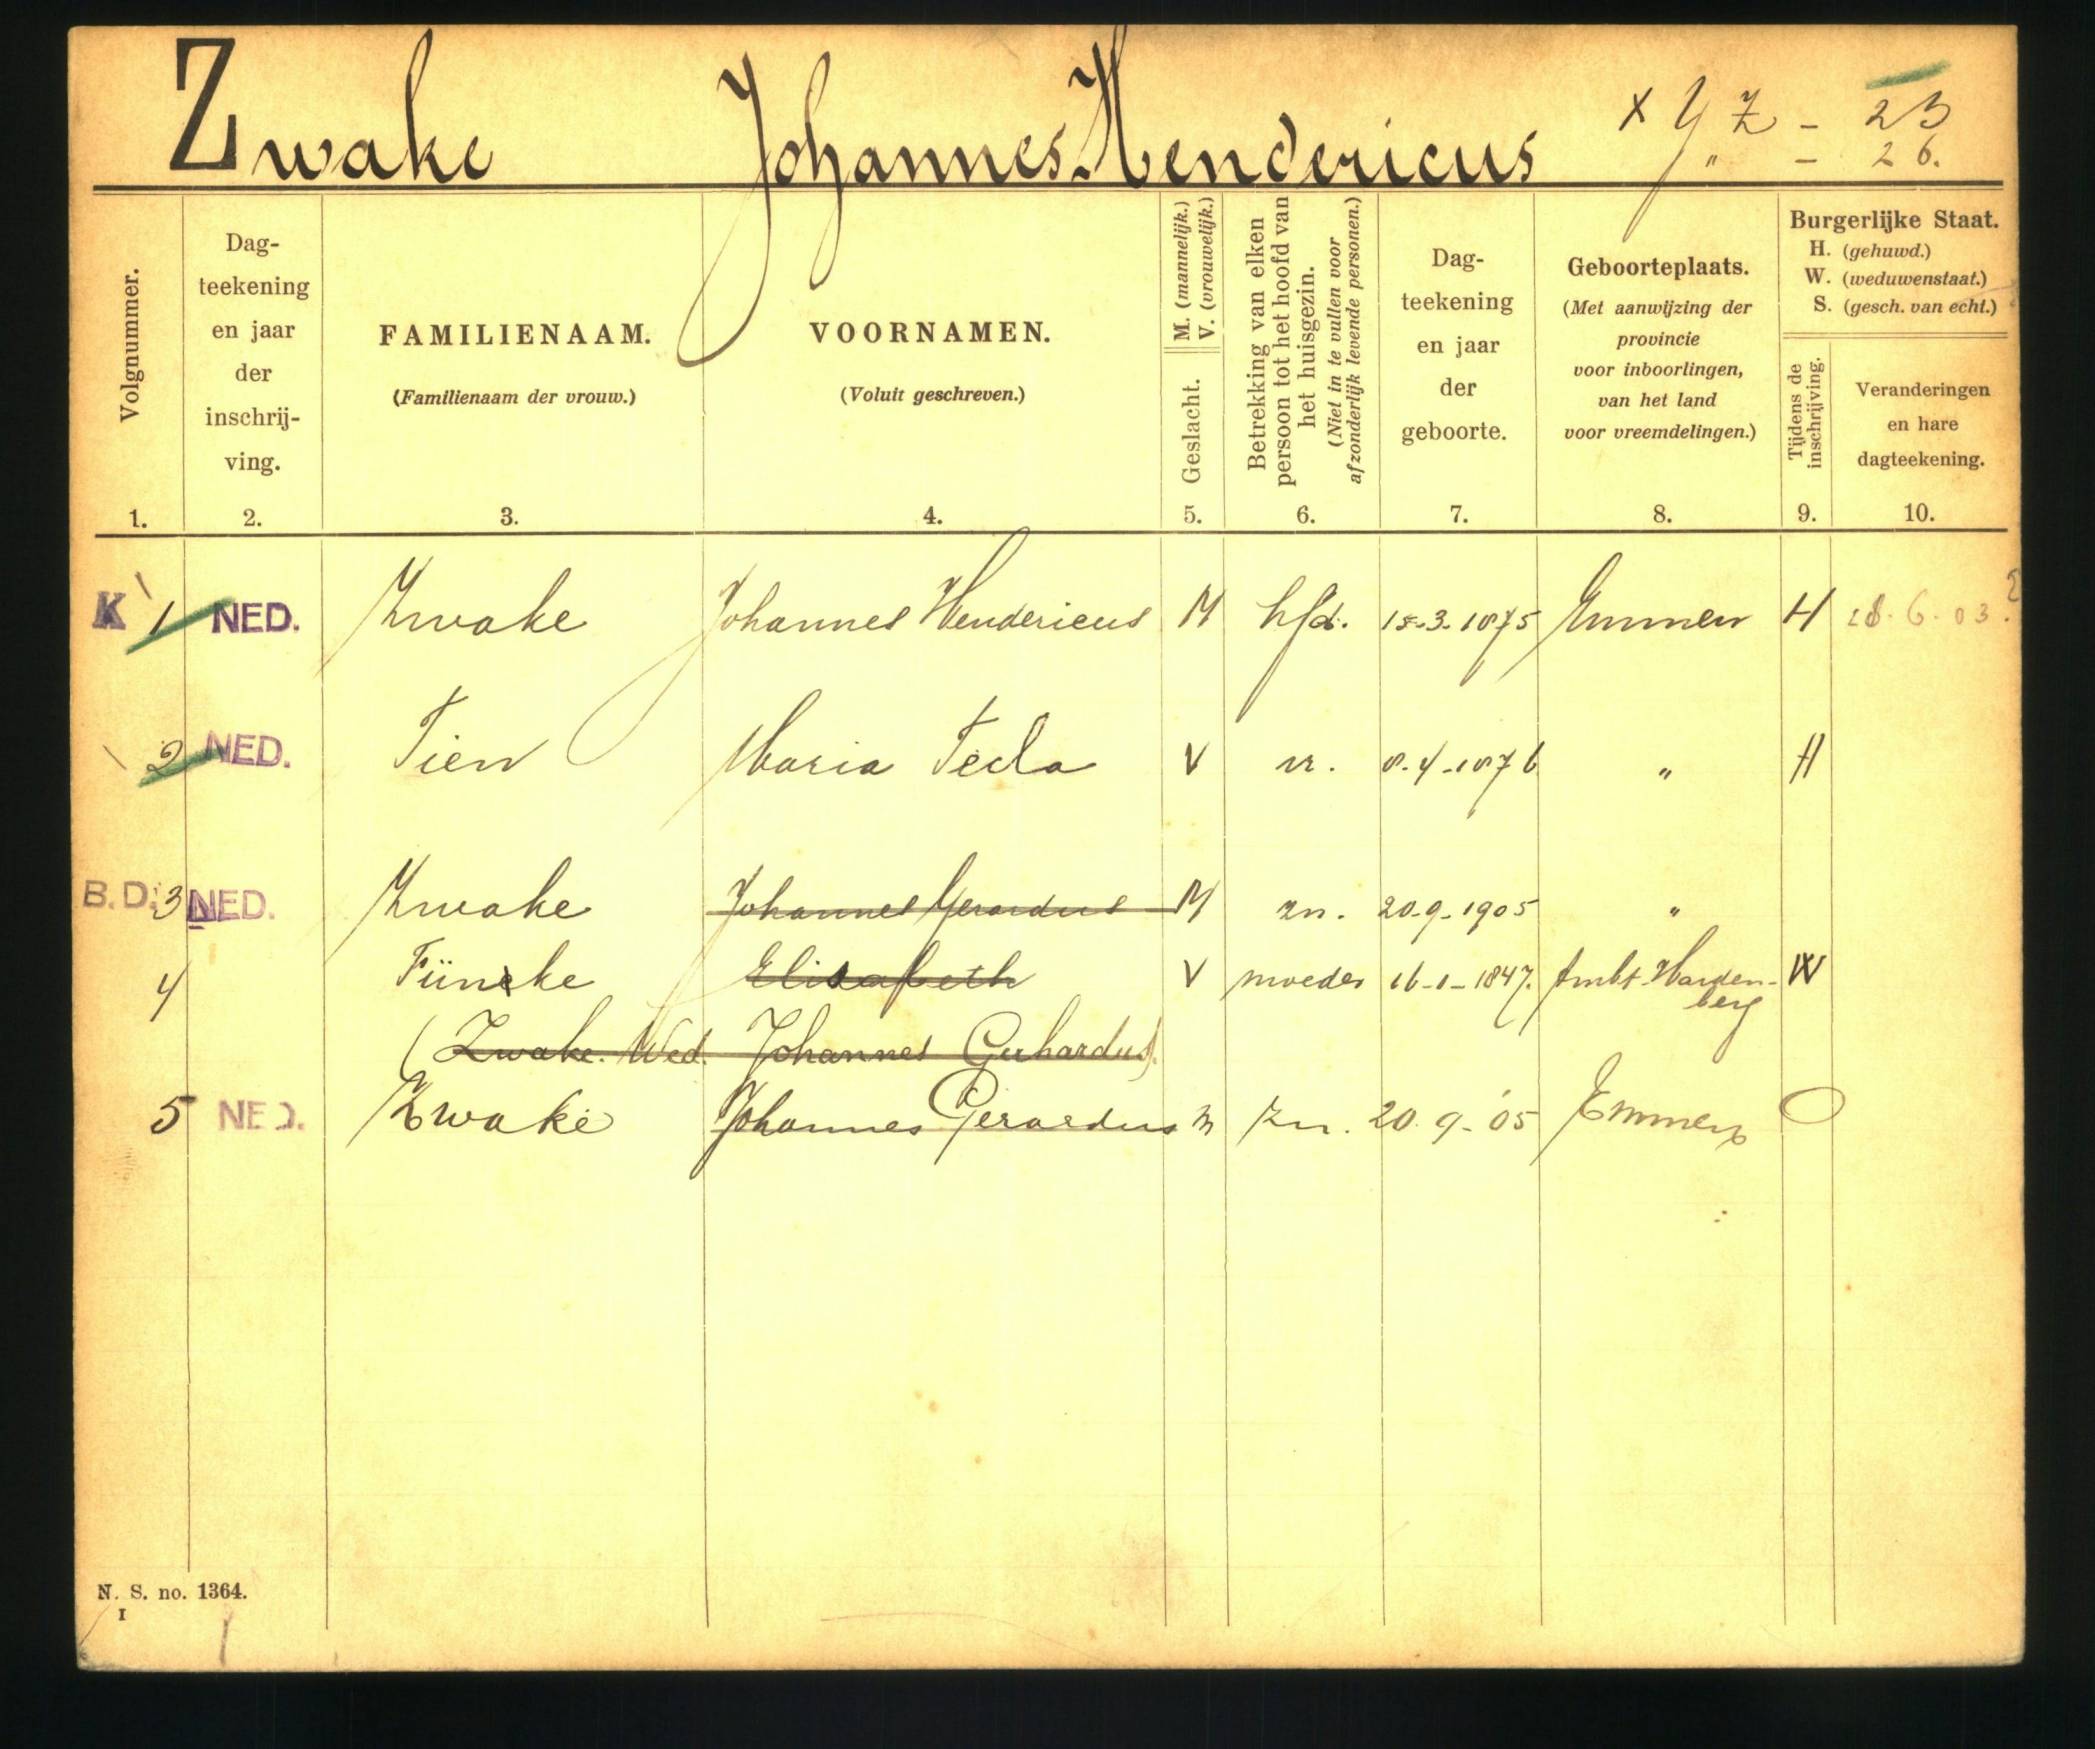 Zwake Johannes Hendericus X Y Z - 23
" - 26.
Volgnummer.
Dag-
teekening
en jaar
der
inschrij-
ving.
FAMILIENAAM.
(Familienaam der vrouw.)
VOORNAMEN.
(Voluit geschreven.)
M. (mannelijk.)
V. (vrouwelijk.)
Geslacht.
Betrekking van elken
persoon tot het hoofd van
het huisgezin.
(Niet in te vullen voor
afzonderlijk levende personen.)
Dag-
teekening
en jaar
der
geboorte.
Geboorteplaats.
(Met aanwijzing der
provincie
voor inboorlingen,
van het land
voor vreemdelingen.)
Burgerlijke Staat.
H. (gehuwd.)
W. (weduwenstaat.)
S. (gesch. van echt.)
Tijdens de
inschrijving.
Veranderingen
en hare
dagteekening.
1. 2. 3. 4. 5. 6. 7. 8. 9. 10.
K 1 NED. Zwake Johannes Hendericus M hfd. 15.3.1875 Emmen H 28.6.03.
2 NED. Tien Maria Tecla V vr. 8.4.1876 " H
B.D. 3 NED. Zwake Johannes Gerardus M zn. 20-9-1905 "
4 Füneke Elisabeth V moeder 16-1-1847. Ambt-Harden-
berg W
(Zwake. Wed. Johannes Gerhardus).
5 NED. Zwake Johannes Gerardus M zn. 20.9-'05 Emmen O
N. S. no. 1364.
I